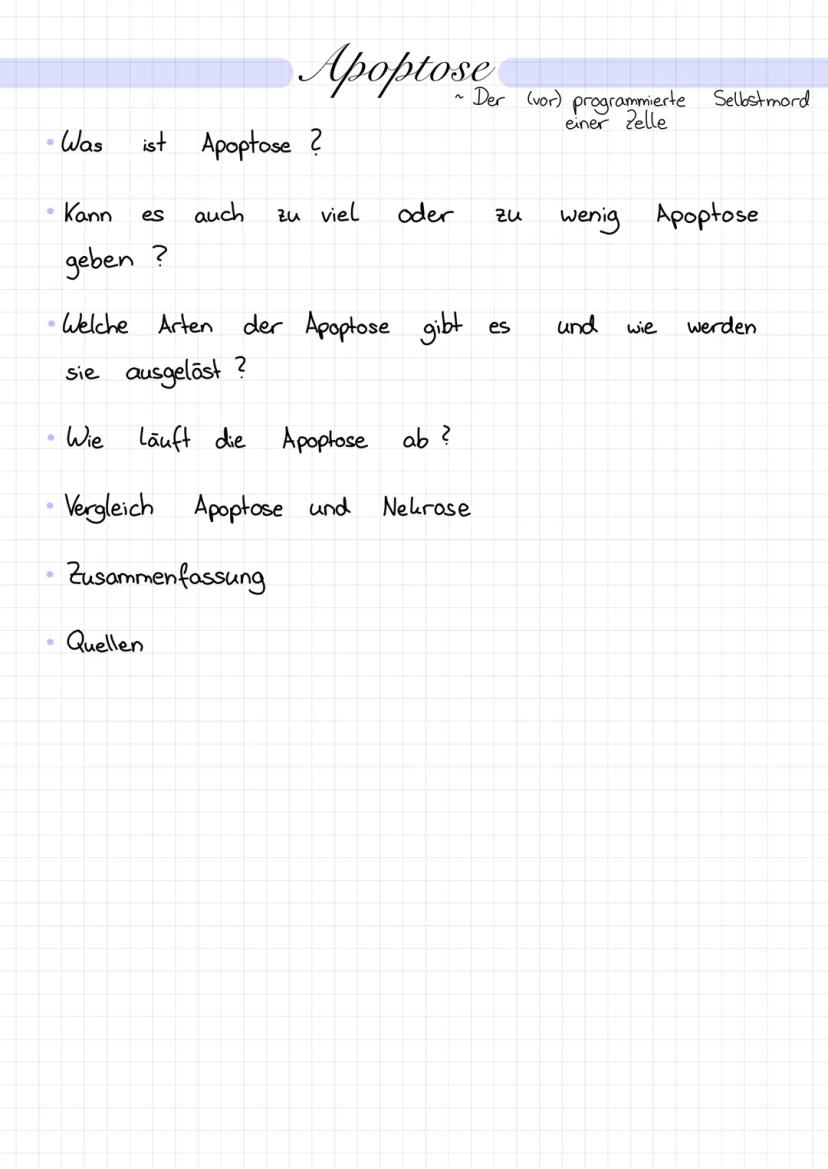 Apoptose
~ Der (vor) programmierte Selbstmord
einer Zelle
• Was ist Apoptose?
• Kann es auch zu viel oder zu wenig Apoptose
geben?
• Welche Arten der Apoptose gibt es und wie werden
sie ausgelöst?
• Wie läuft die Apoptose ab?
• Vergleich Apoptose und Nekrose
• Zusammenfassung
• Quellen